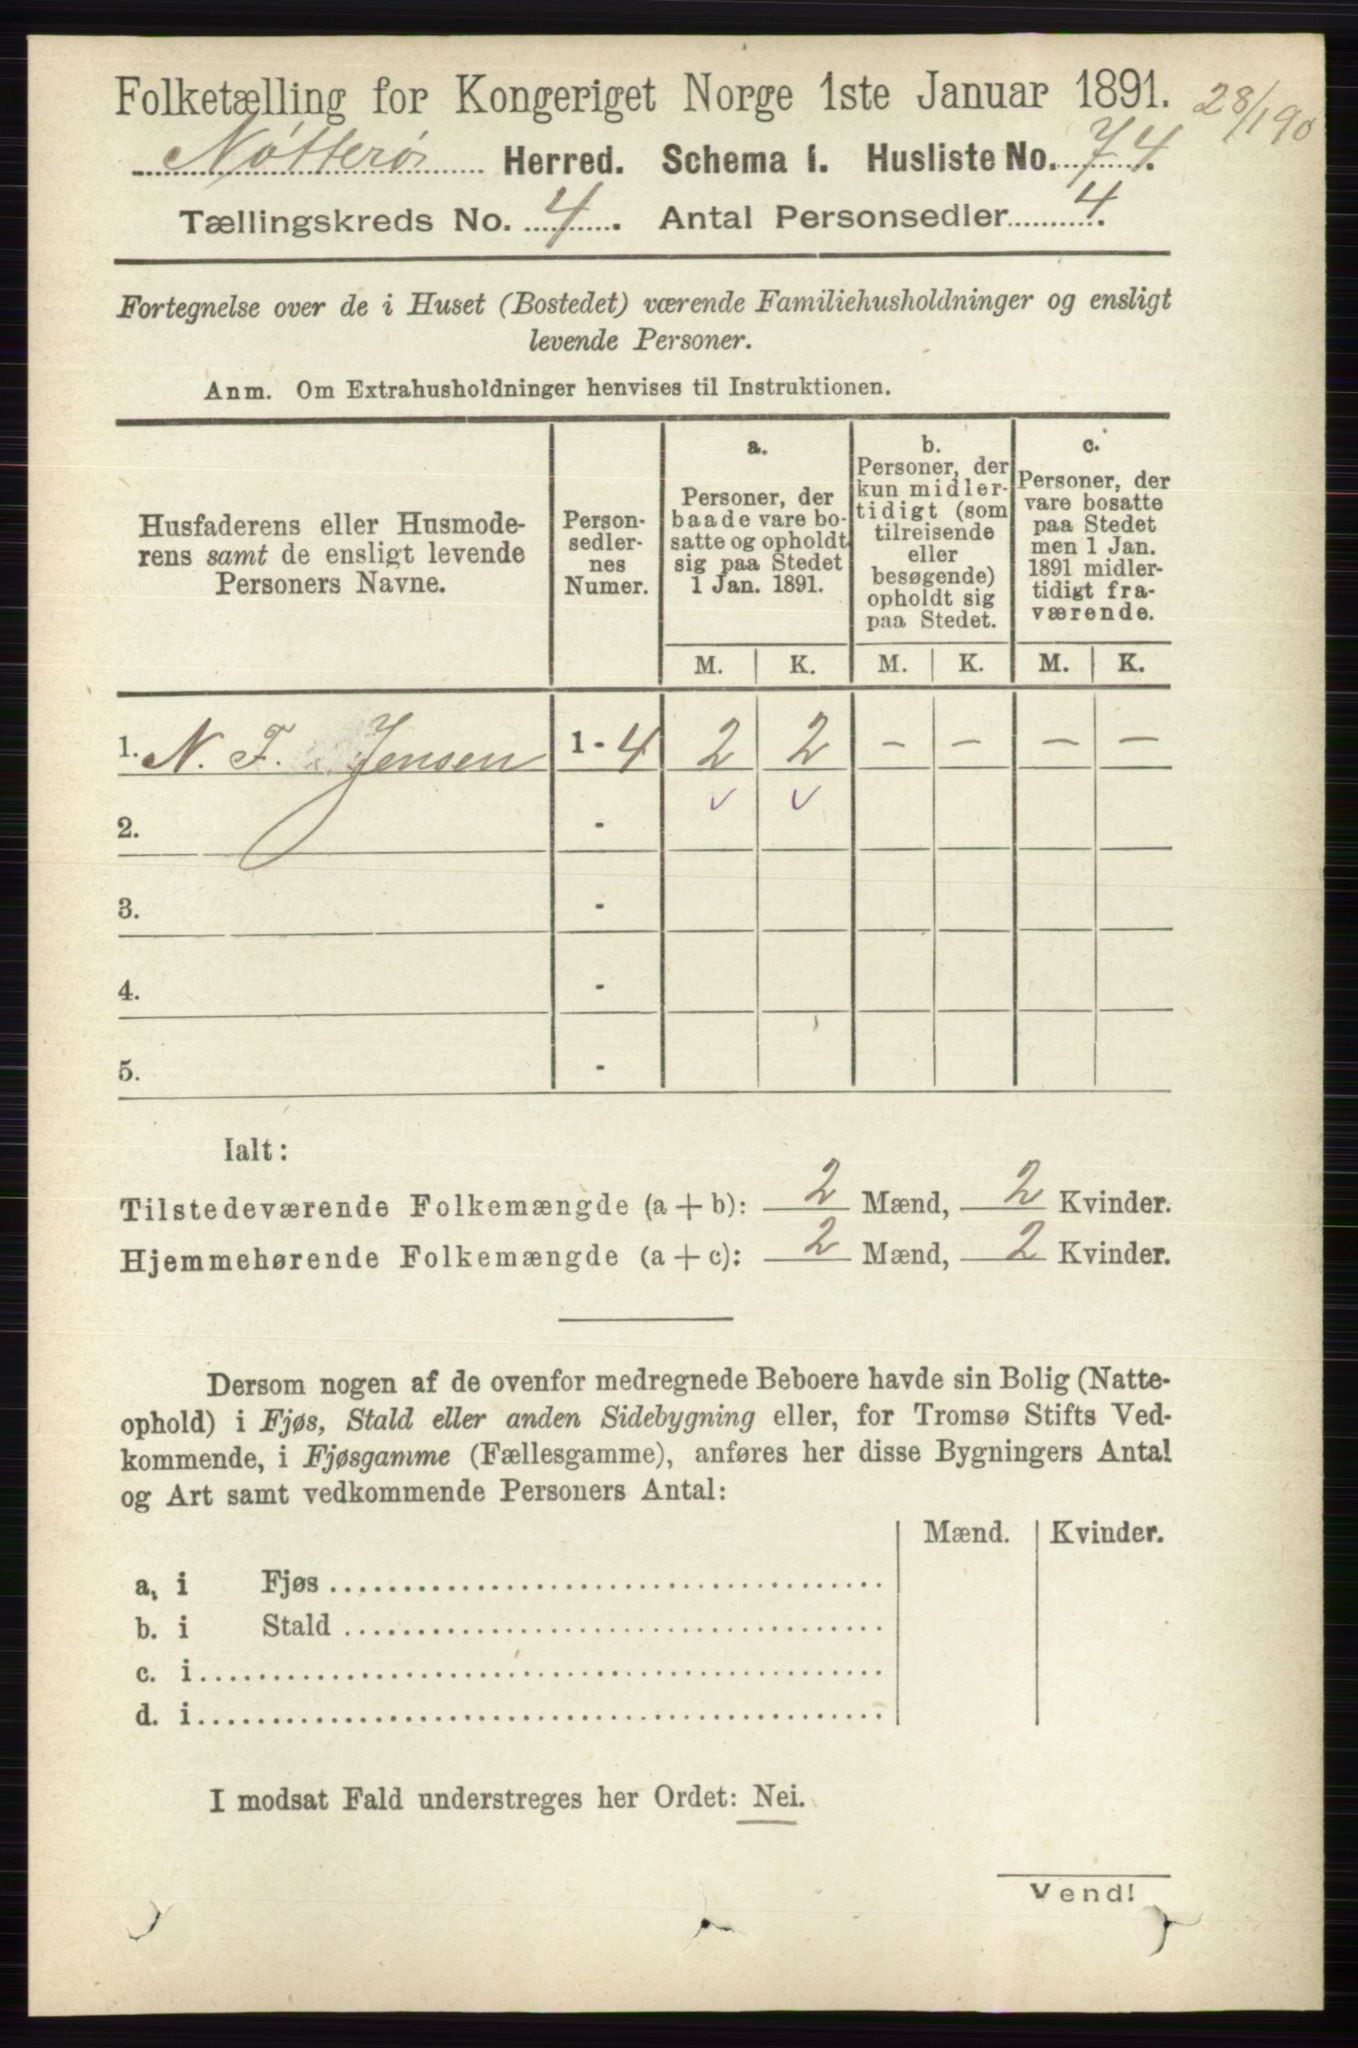 Folketælling for Kongeriget Norge 1ste Januar 1891.
28/190
Nøtterø Herred. Schema I. Husliste No. 74.
Tællingskreds No. 4. Antal Personsedler 4.
Fortegnelse over de i Huset (Bostedet) værende Familiehusholdninger og ensligt
levende Personer.
Anm. Om Extrahusholdninger henvises til Instruktionen.
Husfaderens eller Husmode-
rens samt de ensligt levende
Personers Navne.
Person-
sedler-
nes
Numer.
a.
Personer, der
baade vare bo-
satte og opholdt
sig paa Stedet
1 Jan. 1891.
b.
Personer, der
kun midler-
tidigt (som
tilreisende
eller
besøgende)
opholdt sig
paa Stedet.
c.
Personer, der
vare bosatte
paa Stedet
men 1 Jan.
1891 midler-
tidigt fra-
værende.
M. K. M. K. M. K.
1. N. F. Jensen 1 - 4 2 2 — — — —
2. - v v
3. -
4. -
5. -
Ialt:
Tilstedeværende Folkemængde (a + b): 2 Mænd, 2 Kvinder.
Hjemmehørende Folkemængde (a + c): 2 Mænd, 2 Kvinder.
Dersom nogen af de ovenfor medregnede Beboere havde sin Bolig (Natte-
ophold) i Fjøs, Stald eller anden Sidebygning eller, for Tromsø Stifts Ved-
kommende, i Fjøsgamme (Fællesgamme), anføres her disse Bygningers Antal
og Art samt vedkommende Personers Antal:
Mænd. Kvinder.
a, i Fjøs
b. i Stald
c. i
d. i
I modsat Fald understreges her Ordet: Nei.
Vend!